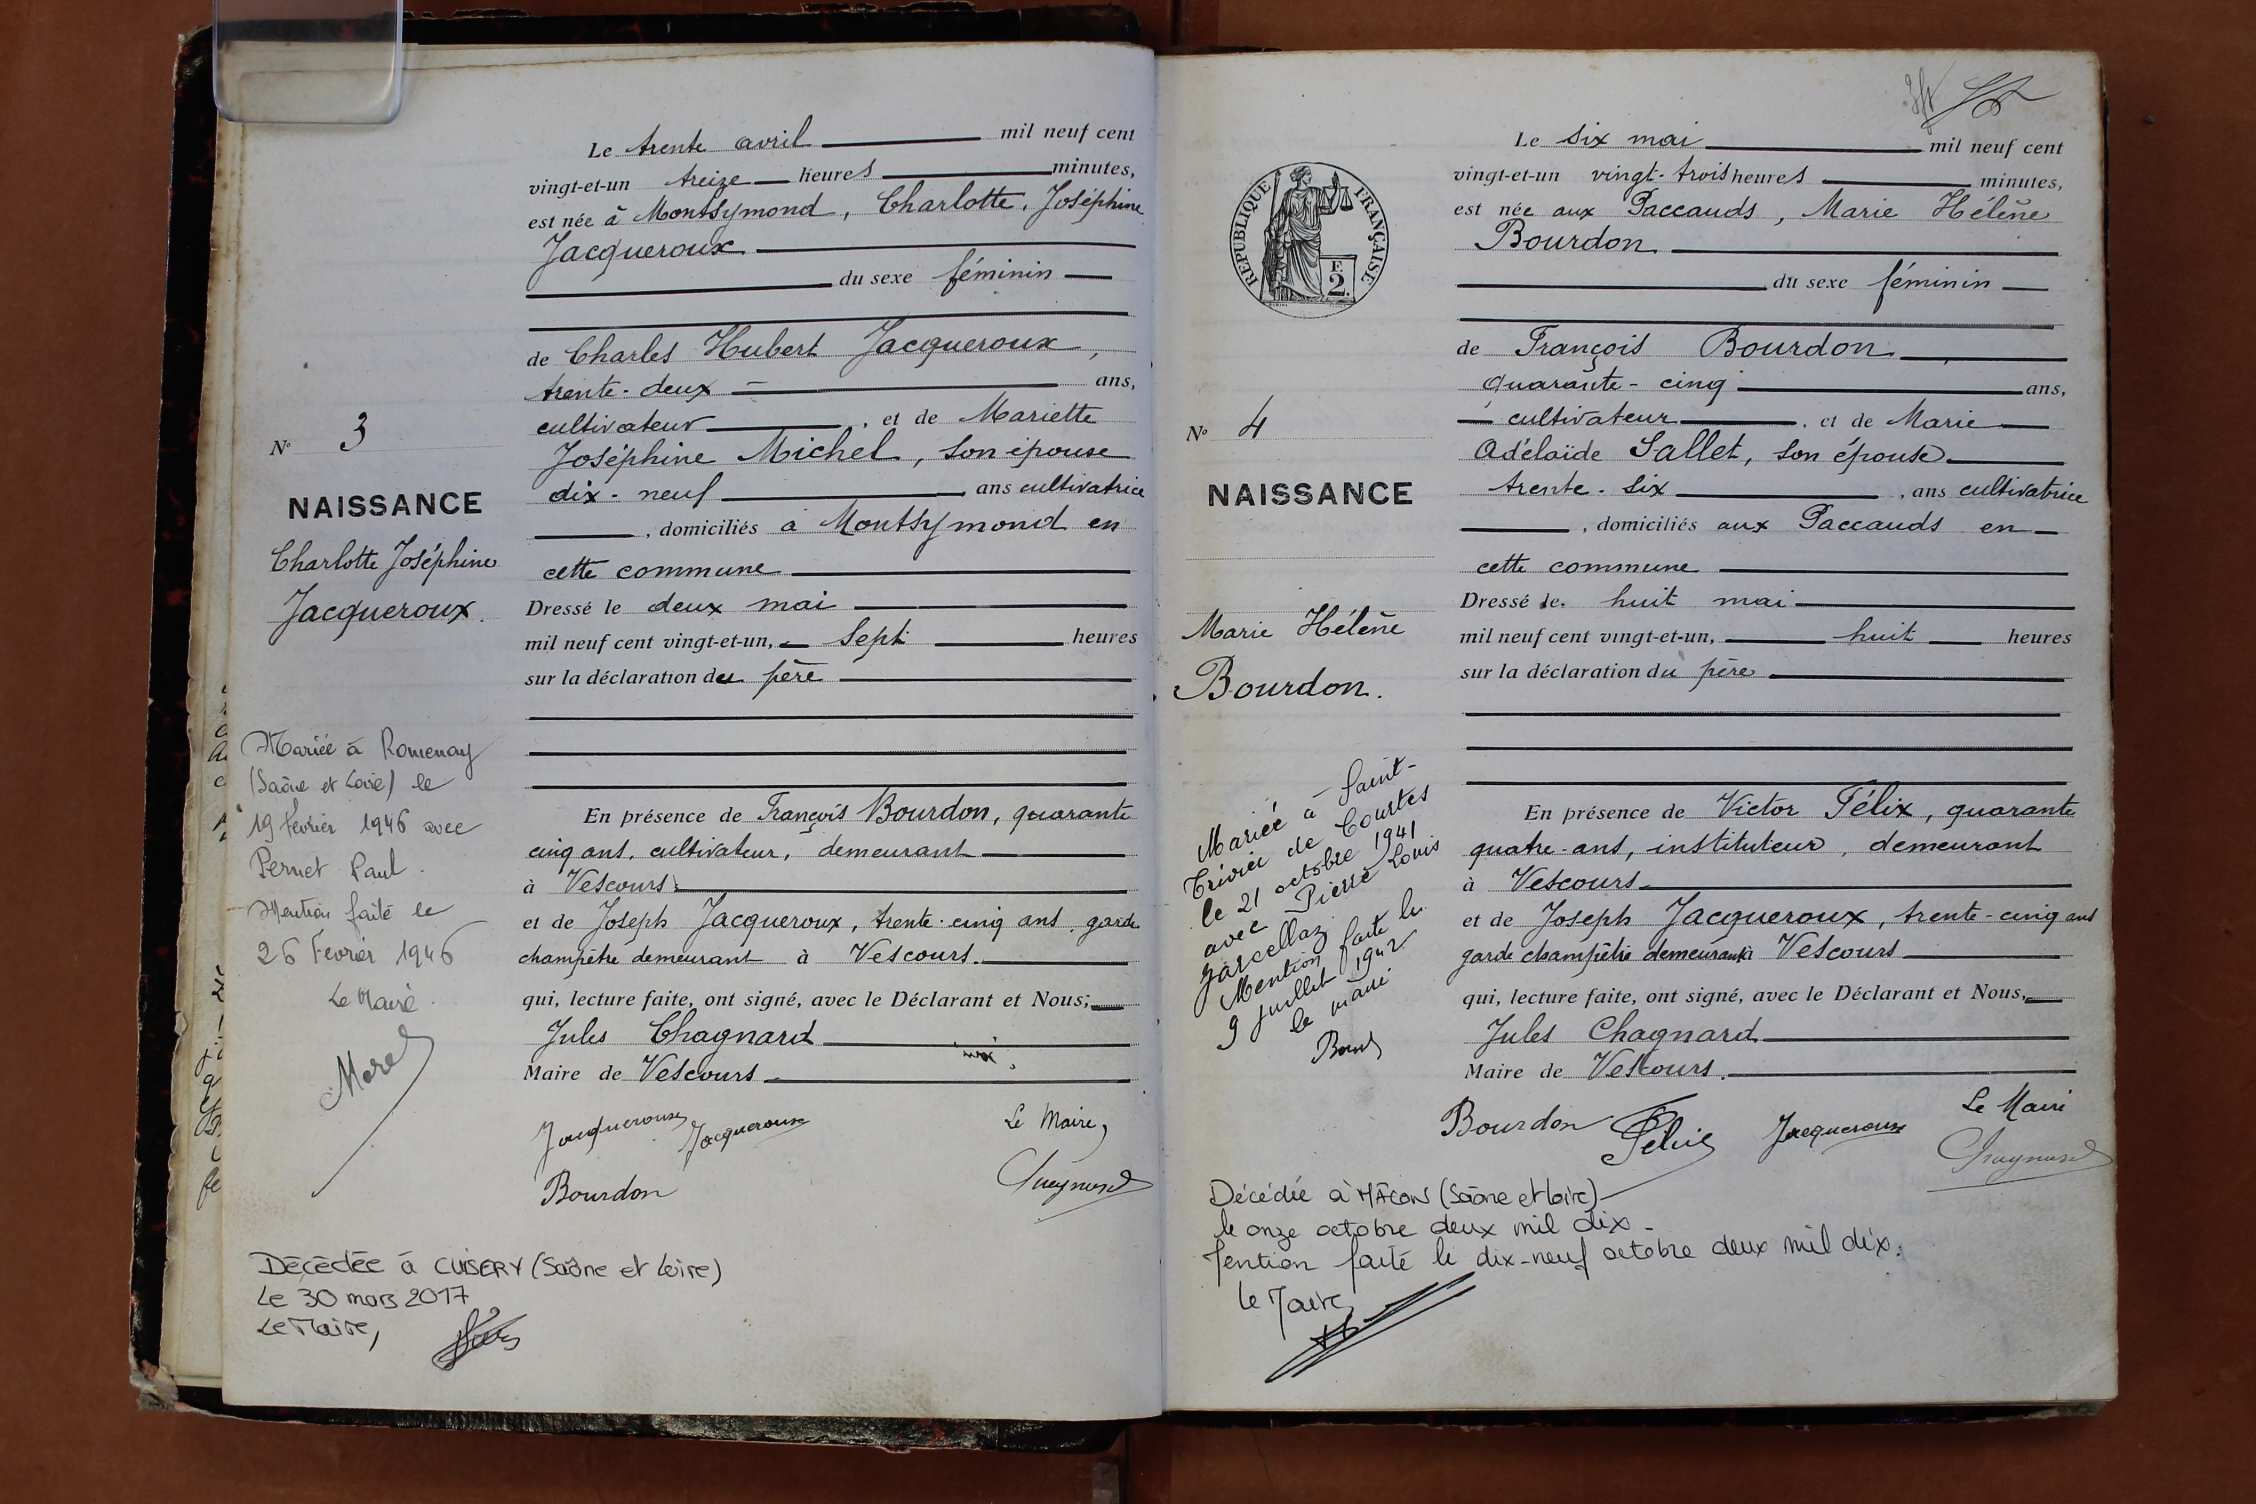 Le trente avril mil neuf cent
vingt-et-un treize heures minutes,
est née à Montsymond, Charlotte, Joséphine
Jacqueroux
du sexe féminin
de Charles Hubert Jacqueroux,
trente-deux ans,
cultivateur, et de Mariette
Joséphine Michel, son épouse
dix-neuf ans cultivatrice
, domiciliés à Montsymond en
cette commune
Dressé le deux mai
mil neuf cent vingt-et-un, sept heures
sur la déclaration du père
En présence de François Bourdon, quarante
cinq ans, cultivateur, demeurant
à Vescours
et de Joseph Jacqueroux, trente-cinq ans, garde
champêtre demeurant à Vescours.
qui, lecture faite, ont signé, avec le Déclarant et Nous,
Jules Chagnard
Maire de Vescours
Jacqueroux Jacqueroux
Le Maire,
Bourdon
Chagnard
No 3
NAISSANCE
Charlotte Joséphine
Jacqueroux.
Mariée à Romenay
(Saône et Loire) le
19 février 1946 avec
Pernet Paul.
Mention faite le
26 Février 1946
Le Maire.
Morel
Décédée à CUISERY (Saône et Loire)
Le 30 mars 2017
Le Maire,
Le six mai mil neuf cent
vingt-et-un vingt-trois heures minutes,
est née aux Paccauds, Marie Hélène
Bourdon
du sexe féminin
de François Bourdon
quarante-cinq ans,
cultivateur, et de Marie
Adélaïde Sallet, son épouse
trente-six, ans cultivatrice
, domiciliés aux Paccauds en
cette commune
Dressé le huit mai
mil neuf cent vingt-et-un, huit heures
sur la déclaration du père
En présence de Victor Félix, quarante
quatre ans, instituteur, demeurant
à Vescours
et de Joseph Jacqueroux, trente-cinq ans
garde champêtre demeurant à Vescours
qui, lecture faite, ont signé, avec le Déclarant et Nous,
Jules Chagnard
Maire de Vescours.
Bourdon Félix Jacqueroux
Le Maire
Chagnard
RÉPUBLIQUE FRANÇAISE
F.
2.
No 4
NAISSANCE
Marie Hélène
Bourdon.
Mariée à Saint-
Trivier de Courtes
le 21 octobre 1941
avec Pierre Louis
Mention faite le
9 juillet 1942
le maire
Décédée à MÂCON (Saône et Loire)
le onze octobre deux mil dix.
Mention faite le dix-neuf octobre deux mil dix.
Le Maire,